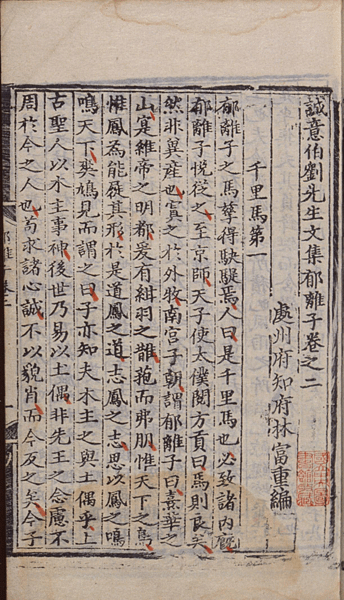 誠意伯劉先生文集郁離子卷之二
處州府知府林富重編
千里馬第一
郁離子之馬孳得駃騠焉人曰是千里馬也必致諸內廐
郁離子悅從之至京師天子使太僕閱方貢曰馬則良矣
然非冀產也寘之於外牧南宮子朝謂郁離子曰熹華之
山寔維帝之明都爰有紺羽之鵲菢而弗朋惟天下之鳥
惟鳳為能屐其形於是道鳳之道志鳳之志思以鳳之鳴
鳴天下奚鳩見而謂之曰子亦知夫木主之與土偶乎上
古聖人以木主事神後世乃易以土偶非先王之念慮不
周於今之人也苟求諸心誠不以貌肖而今反之矣今子
郁離子卷二